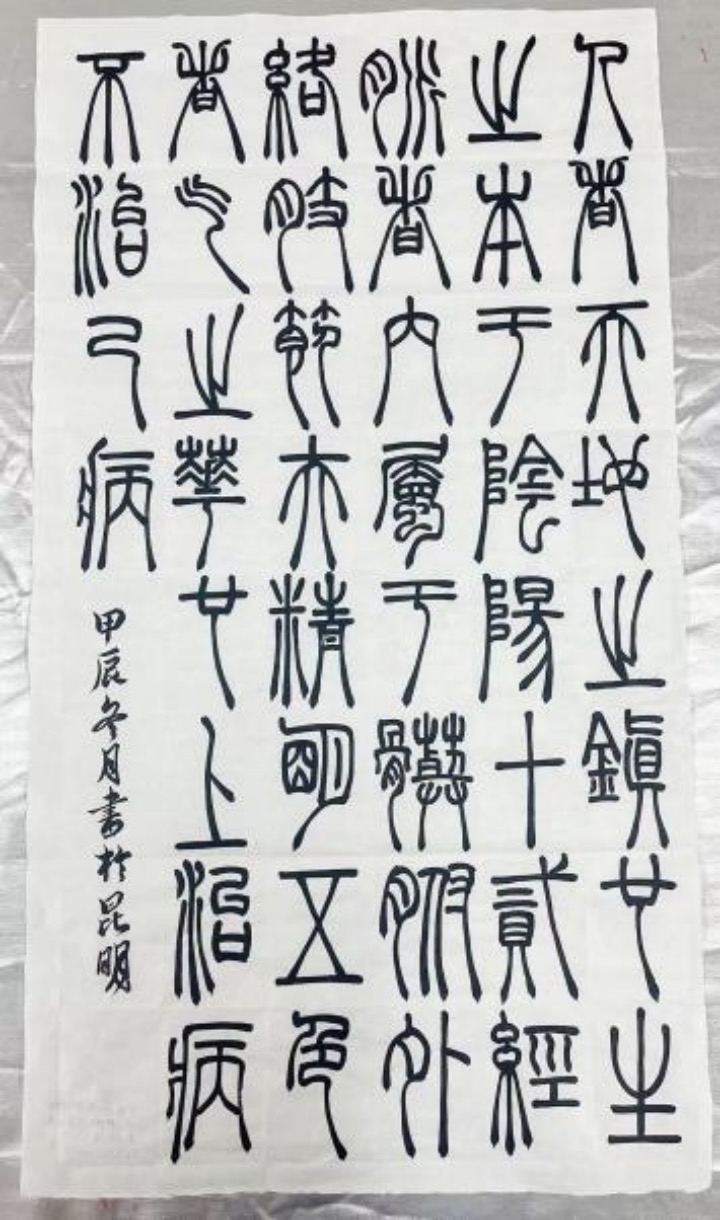 人者天地之鎮也生
之本于陰陽十貳經
脈者內屬于髒腑外
絡肢節夫精明五色
者气之華也上治病
不治已病
甲辰冬月書於昆明